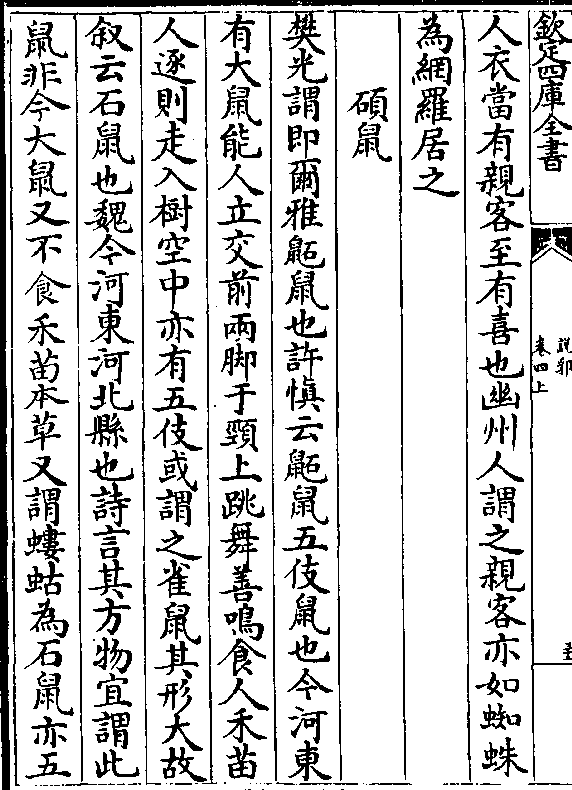 欽定四庫全書
說郛
卷四上
人衣當有親客至有喜也幽州人謂之親客亦如蜘蛛
為網羅居之
碩鼠
樊光謂即爾雅鼫鼠也許慎云鼫鼠五伎鼠也今河東
有大鼠能人立交前兩脚于頸上跳舞善鳴食人禾苗
人逐則走入樹空中亦有五伎或謂之雀鼠其形大故
叙云石鼠也魏今河東河北縣也詩言其方物宜謂此
鼠非今大鼠又不食禾苗本草又謂螻蛄為石鼠亦五